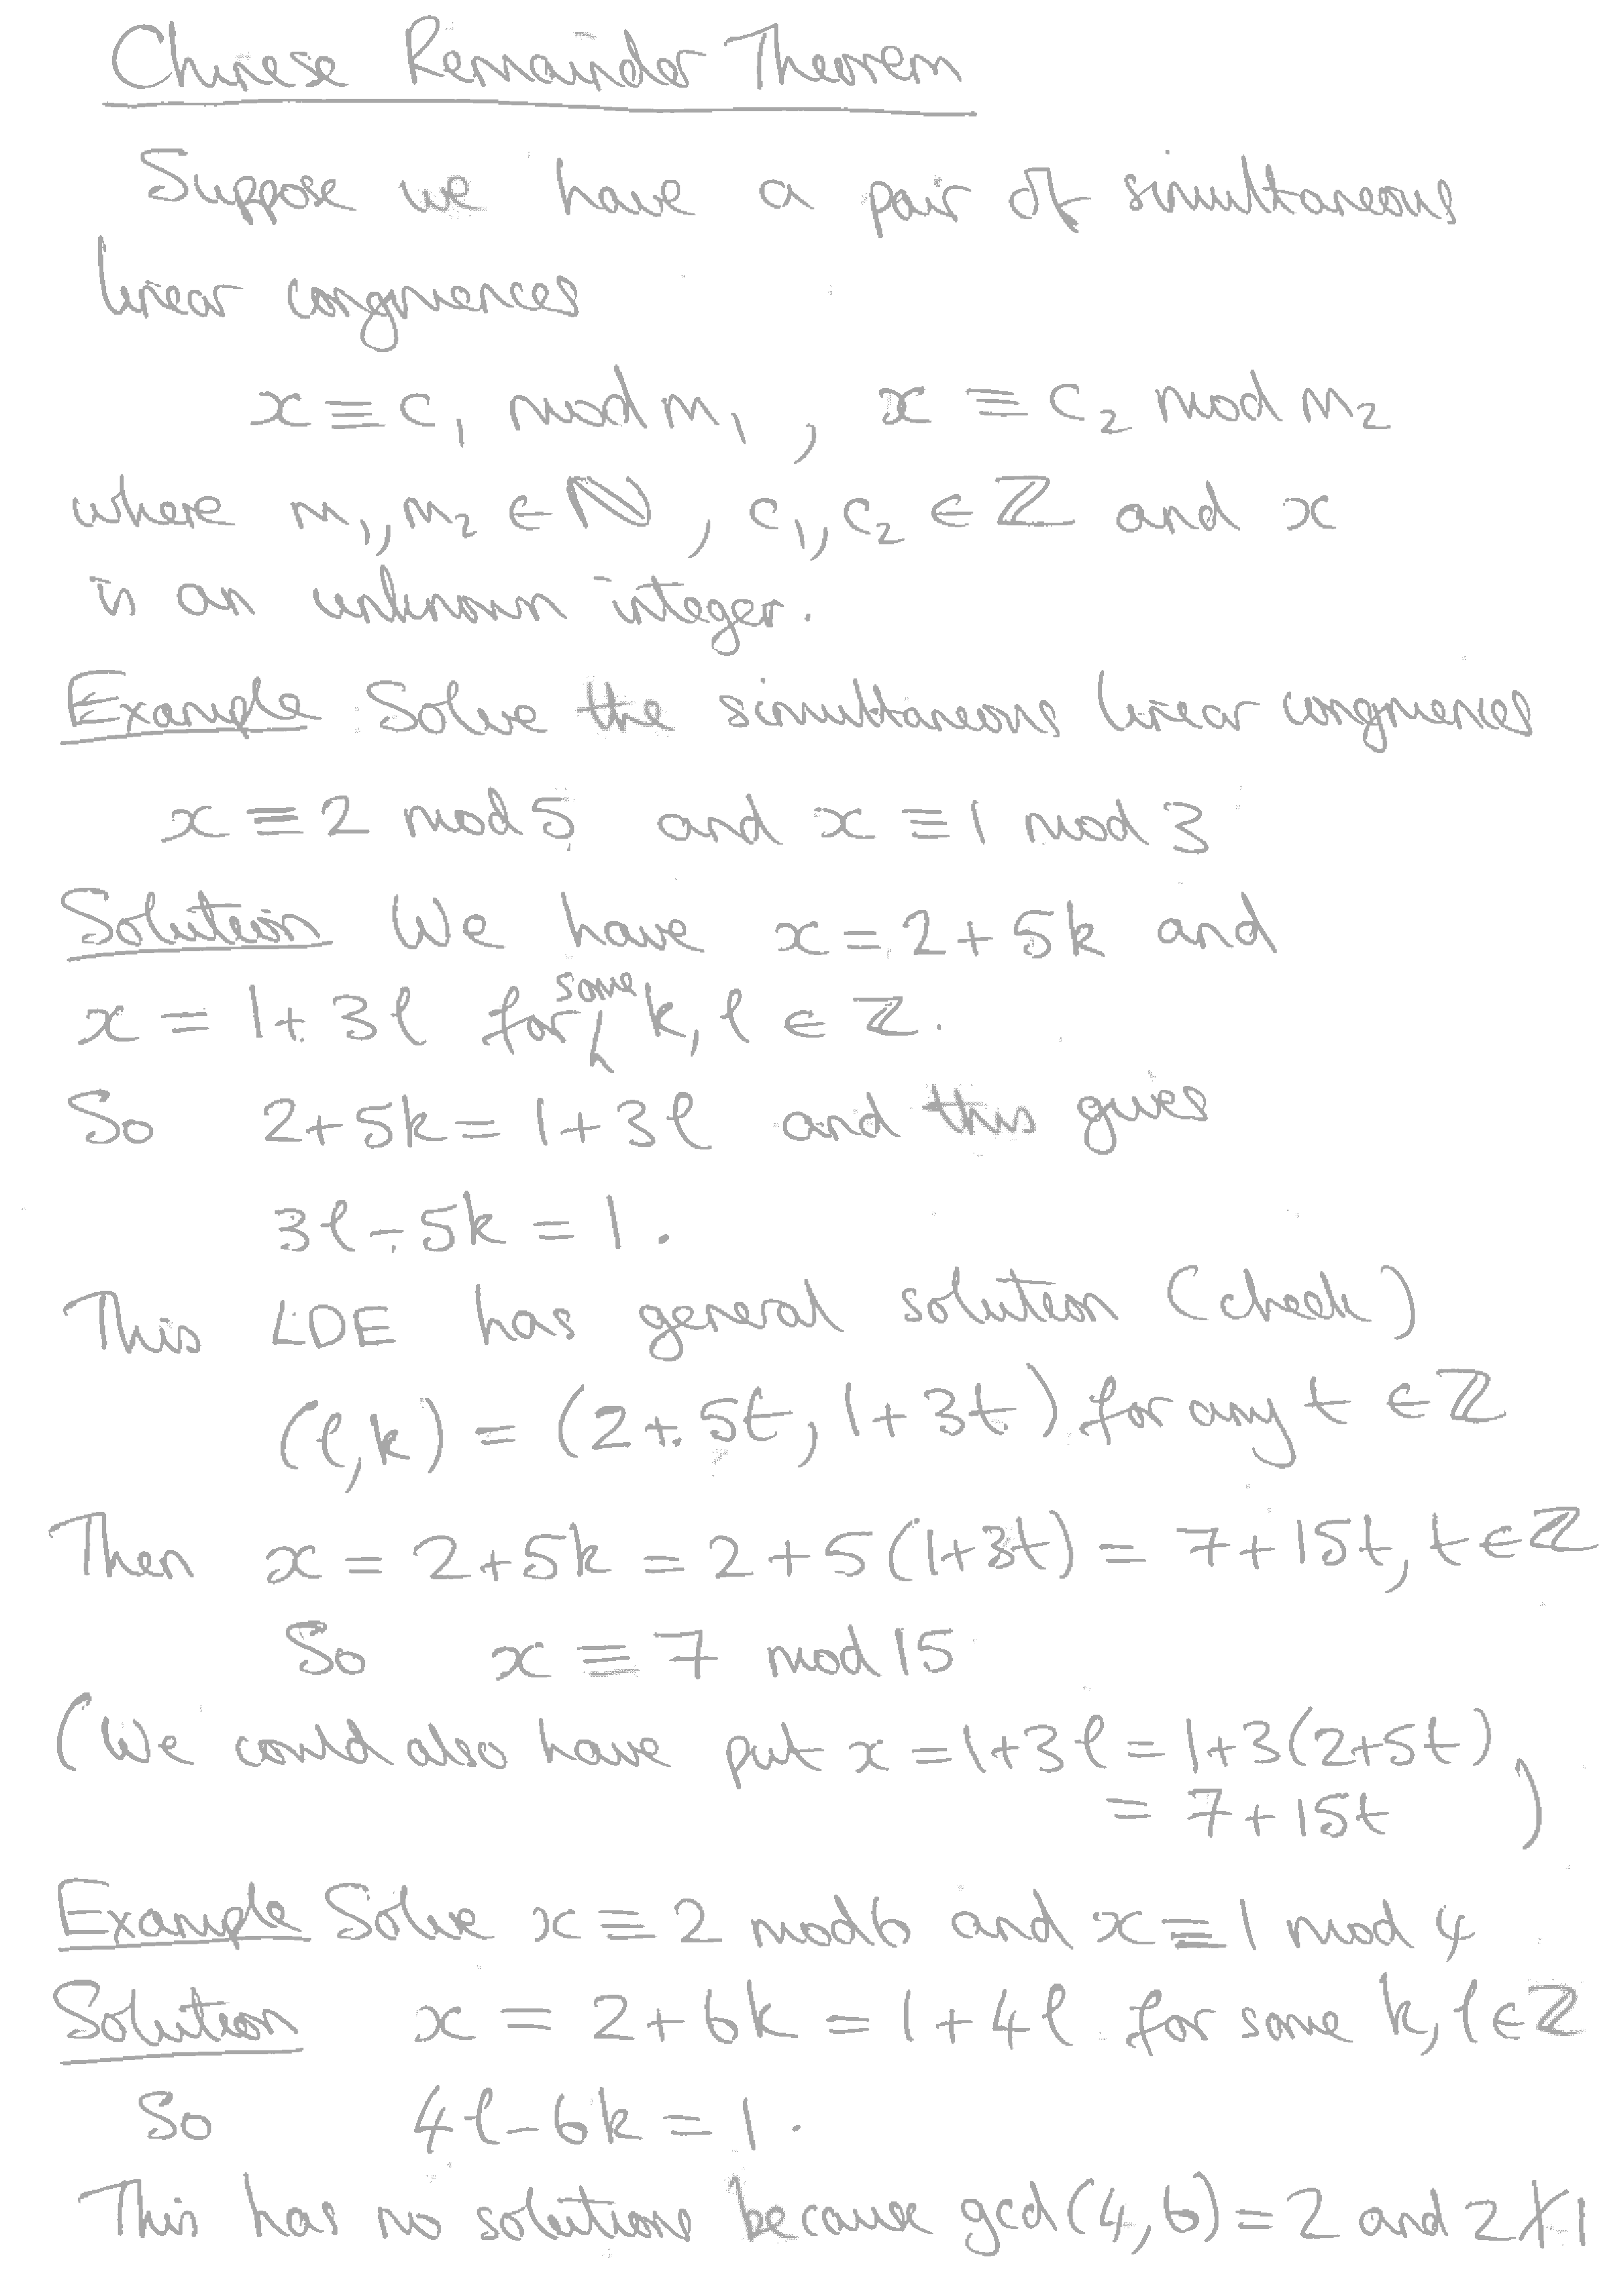 Chinese Remainder Theorem
Suppose we have a pair of simultaneous
linear congruences
x ≡ c₁ mod m₁, x ≡ c₂ mod m₂
where m₁, m₂ ∈ ℕ, c₁, c₂ ∈ ℤ and x
is an unknown integer.
Example Solve the simultaneous linear congruences
x ≡ 2 mod 5 and x ≡ 1 mod 3
Solution We have x = 2 + 5k and
x = 1 + 3ℓ for some k, ℓ ∈ ℤ.
So 2 + 5k = 1 + 3ℓ and this gives
3ℓ - 5k = 1.
This LDE has general solution (check)
(ℓ, k) = (2 + 5t, 1 + 3t) for any t ∈ ℤ
Then x = 2 + 5k = 2 + 5(1 + 3t) = 7 + 15t, t ∈ ℤ
So x ≡ 7 mod 15
(We could also have put x = 1 + 3ℓ = 1 + 3(2 + 5t)
= 7 + 15t)
Example Solve x ≡ 2 mod 6 and x ≡ 1 mod 4
Solution x = 2 + 6k = 1 + 4ℓ for some k, ℓ ∈ ℤ
So 4ℓ - 6k = 1.
This has no solutions because gcd(4, 6) = 2 and 2 ∤ 1